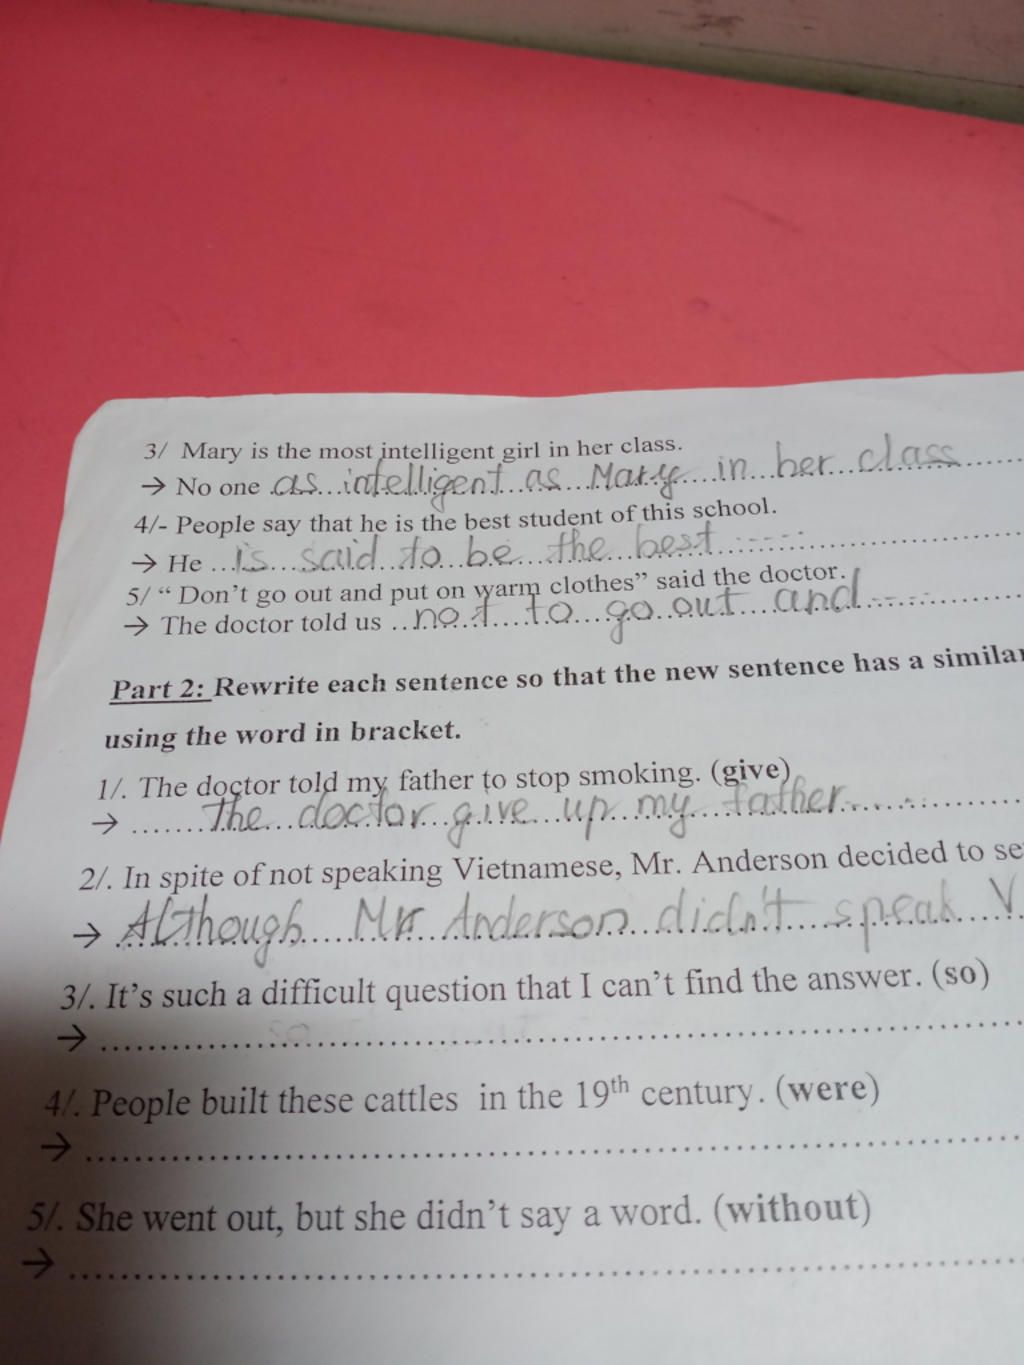 3/ Mary is the most intelligent girl in her class.
→ No one as intelligent as Mary in her class
4/- People say that he is the best student of this school.
→ He is said to be the best
5/ “ Don’t go out and put on warm clothes” said the doctor.
→ The doctor told us not to go out and
Part 2: Rewrite each sentence so that the new sentence has a similar
using the word in bracket.
1/. The doctor told my father to stop smoking. (give)
→ The doctor give up my father
2/. In spite of not speaking Vietnamese, Mr. Anderson decided to se
→ Although Mr Anderson didn't speak V
3/. It’s such a difficult question that I can’t find the answer. (so)
→
4/. People built these cattles in the 19th century. (were)
→
5/. She went out, but she didn’t say a word. (without)
→